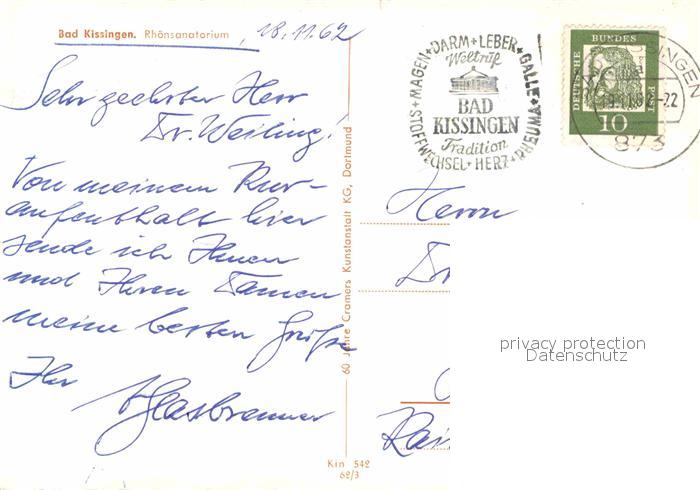 Bad Kissingen. Rhönsanatorium
18.11.62
Sehr geehrter Herr
Dr. Weiling!
Von meinem Kur-
aufenthalt hier
sende ich Ihnen
und Ihren Damen
meine besten Grüße
Ihr
Glasbrenner
60 Jahre Cramers Kunstanstalt KG, Dortmund
Kin 542
62/3
MAGEN + DARM + LEBER + GALLE + RHEUMA + HERZ + STOFFWECHSEL +
Weltruf
BAD
KISSINGEN
Tradition
DEUTSCHE BUNDESPOST
10
873
Herrn
Dr
privacy protection
Datenschutz